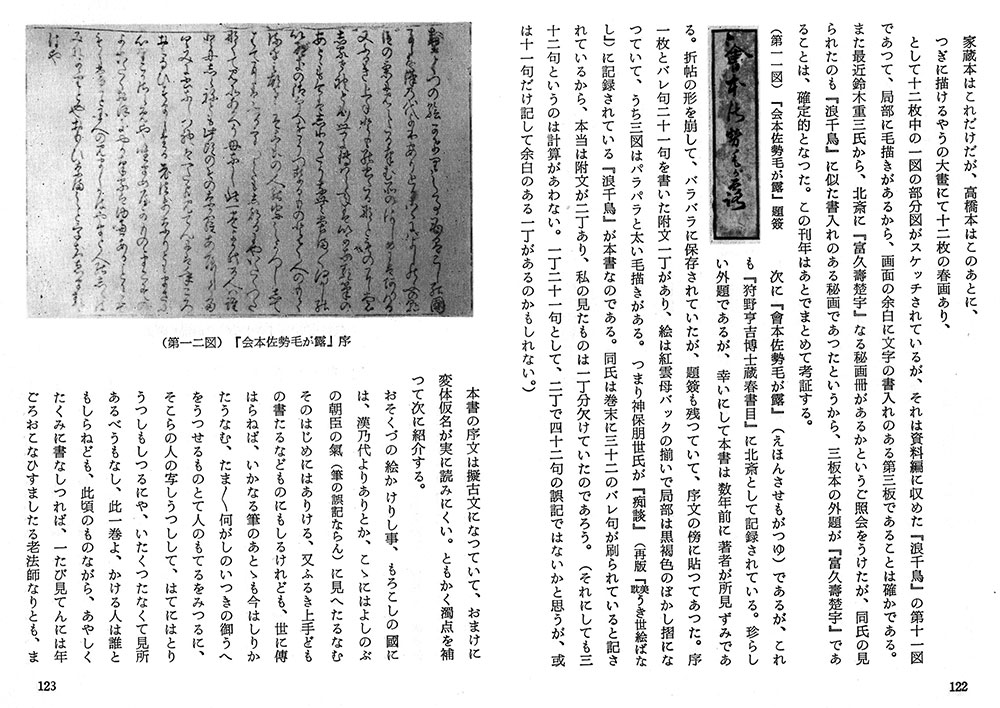 家蔵本はこれだけだが、高橋本はこのあとに、
つぎに描けるやうの大畫にて十二枚の春画あり、
として十二枚中の一図の部分図がスケッチされているが、それは資料編に収めた『浪千鳥』の第十一図
であつて、局部に毛描きがあるから、画面の余白に文字の書入れのある第三板であることは確かである。
また最近鈴木重三氏から、北斎に『富久壽楚宇』なる秘画冊があるかというご照会をうけたが、同氏の見
られたのも『浪千鳥』に似た書入れのある秘画であつたというから、三板本の外題が『富久壽楚宇』であ
ることは、確定的となつた。この刊年はあとでまとめて考証する。
(第一一図)『会本佐勢毛が露』題簽
次に『會本佐勢毛が露』(えほんさせもがつゆ)であるが、これ
も『狩野亨吉博士蔵春書目』に北斎として記録されている。珍らし
い外題であるが、幸いにして本書は数年前に著者が所見ずみであ
る。折帖の形を崩して、バラバラに保存されていたが、題簽も残つていて、序文の傍に貼つてあつた。序
一枚とバレ句二十一句を書いた附文一丁があり、絵は紅雲母バックの揃いで局部は黒褐色のぼかし摺にな
つていて、うち三図はパラパラと太い毛描きがある。つまり神保朋世氏が『痴談』(再版『歓美うき世絵ばな
し)に記録されている『浪千鳥』が本書なのである。同氏は巻末に三十二のバレ句が刷られていると記さ
れているから、本当は附文が二丁あり、私の見たものは一丁分欠けていたのであろう。(それにしても三
十二句というのは計算があわない。一丁二十一句として、二丁で四十二句の誤記ではないかと思うが、或
は十一句だけ記して余白のある一丁があるのかもしれない。)
122
(第一二図)『会本佐勢毛が露』序
本書の序文は擬古文になつていて、おまけに
変体仮名が実に読みにくい。ともかく濁点を補
つて次に紹介する。
おそくづの絵かけりし事、もろこしの國に
は、漢乃代よりありとか、こゝにはよしのぶ
の朝臣の氣(筆の誤記ならん)に見へたるなむ
そのはじめにはありける、又ふるき上手ども
の書たるなどものにもしるけれども、世に傳
はらねば、いかなる筆のあとゝも今はしりか
たうなむ、たま〱何がしのいつきの御うへ
をうつせるものとて人のもてるをみつるに、
そこらの人の写しうつしして、はてにはとり
うつしもしつるにや、いたくつたなくて見所
あるべうもなし、此一巻よ、かける人は誰と
もしらねども、此頃のものながら、あやしく
たくみに書なしつれば、一たび見てんには年
ごろおこなひすましたる老法師なりとも、ま
123